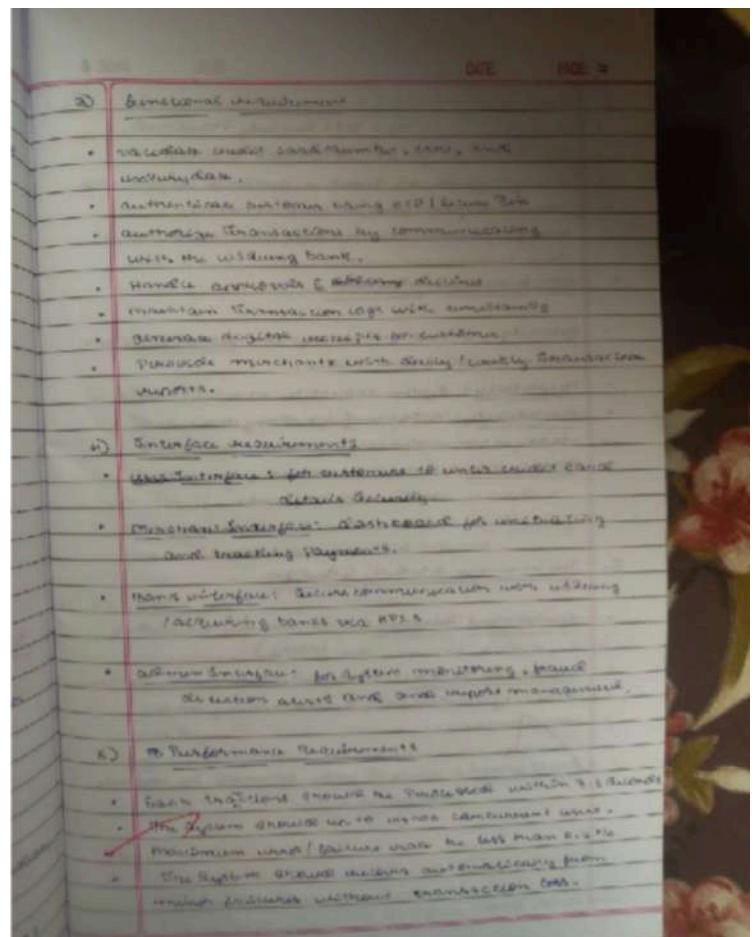 DATE PAGE
3) Functional requirement
• validate credit card number, CVV, and
expiry date.
• authenticate customer using OTP / secure Pin
• authorize Transactions by communicating
with the issuing bank.
• Handle approvals & declines
• maintain Transaction logs with
• generate digital receipts for customer.
• Provide merchants with daily / weekly Transaction
reports.
4) Interface requirements
• User Interface : for customers to enter credit card
details securely
• Merchant Interface : dashboard for initiating
and tracking Payments.
• Bank interface : secure communication with issuing
/ acquiring banks via
• admin Interface : for system monitoring, fraud
detection alerts and and report management.
5) Performance Requirements
• Each should be Processed within seconds
• The System should concurrent users.
• maximum error / failure must be less than
• The System should recover automatically from
minor failures without transaction loss.